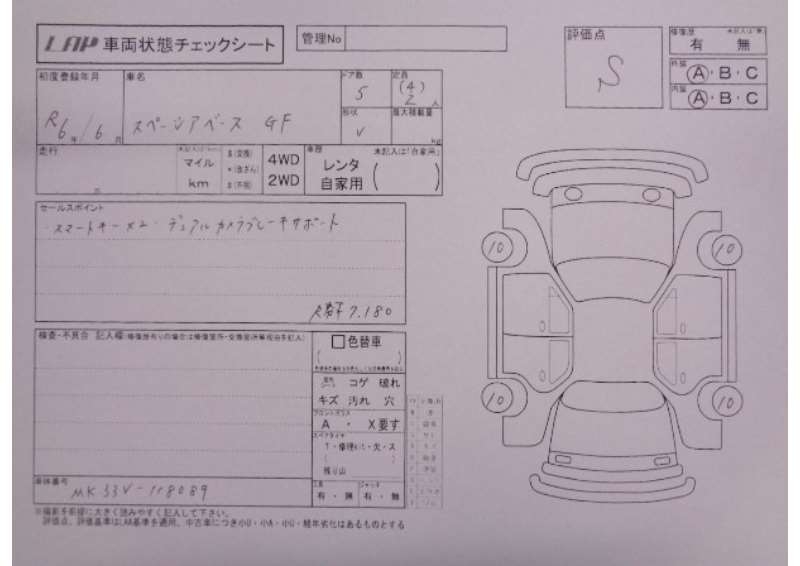 LAP 車両状態チェックシート
管理No
評価点
S
修復歴 未記入は「無」
有 無
外装 A・B・C
内装 A・B・C
初度登録年月
R6年/6月
車名
スペーシアベース GF
ドア数
5
定員
(4)
2人
形状
V
最大積載量
kg
走行
マイル
km
4WD
2WD
車歴 未記入は「自家用」
レンタ
自家用 ( )
セールスポイント
・スマートキー×2・デュアルカメラブレーキサポート
7.180
10
10
10
10
検査・不具合 記入欄
色替車
( )
コゲ 破れ
キズ 汚れ 穴
フロントガラス
A ・ X要す
スペアタイヤ
T・修理キット・欠・ス
残り山
工具
有・無
ジャッキ
有・無
車体番号
MK33V-118089
※撮影を前提に大きく読みやすく記入して下さい。
評価点、評価基準はLAA基準を適用、中古車につき小U・小A・小G・経年劣化はあるものとする